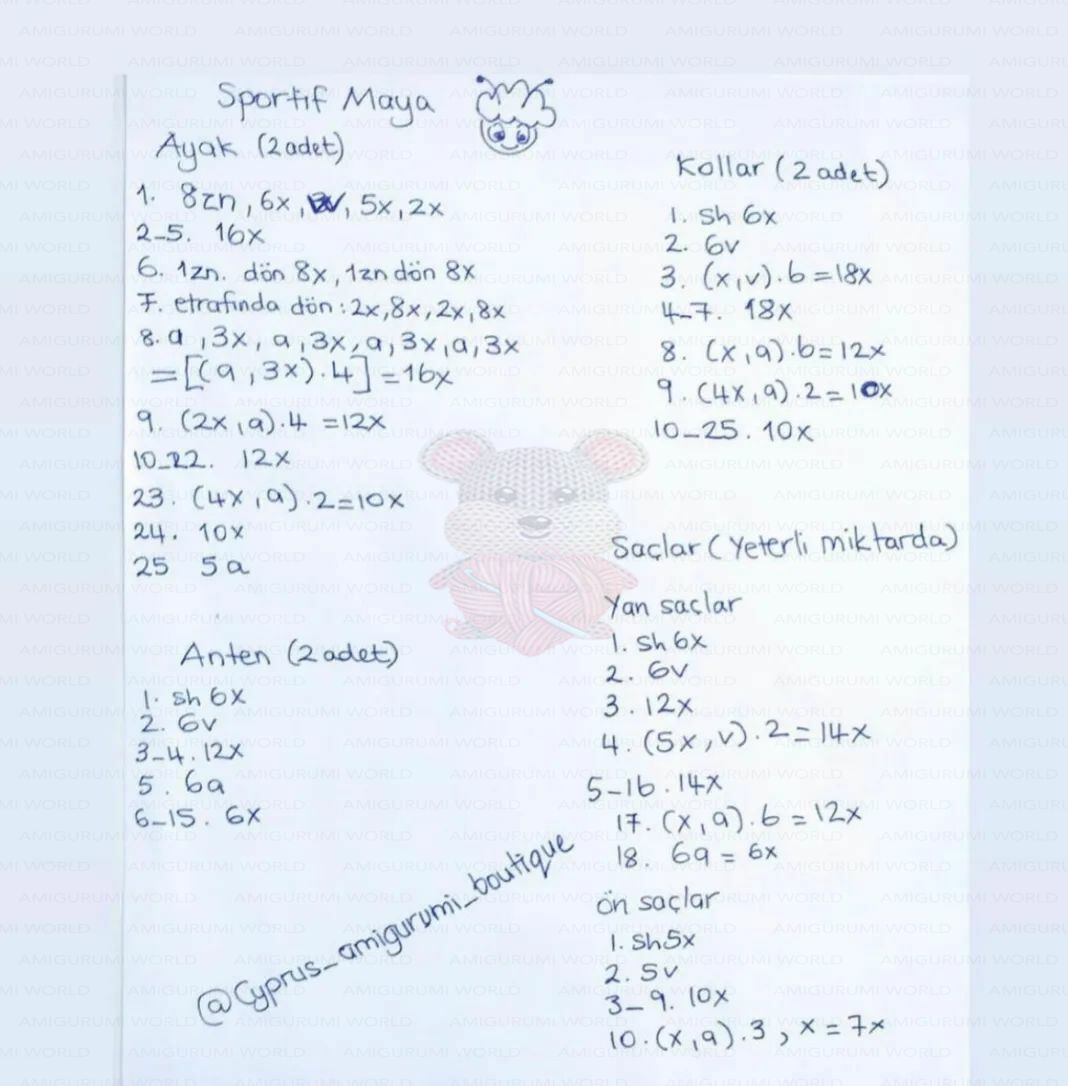 Sportif Maya
Ayak (2 adet)
1. 8zn, 6x, V, 5x, 2x
2-5. 16x
6. 1zn. dön 8x, 1zn dön 8x
7. etrafında dön: 2x, 8x, 2x, 8x
8. a, 3x, a, 3x, a, 3x, a, 3x
= [(a, 3x).4] = 16x
9. (2x, a).4 = 12x
10-22. 12x
23. (4x, a).2=10x
24. 10x
25 5a
Anten (2 adet)
1. sh 6x
2. 6v
3-4. 12x
5. 6a
6-15. 6x
@Cyprus_amigurumi_boutique
Kollar (2 adet)
1. sh 6x
2. 6v
3. (x,v).6=18x
4-7. 18x
8. (x,a).6=12x
9. (4x,a).2=10x
10-25. 10x
Saçlar (Yeterli miktarda)
Yan saçlar
1. sh 6x
2. 6v
3. 12x
4. (5x,v).2=14x
5-16. 14x
17. (x,a).6=12x
18. 6a = 6x
Ön saçlar
1. sh5x
2. 5v
3-9. 10x
10. (x,a).3, x=7x
AMIGURUMI WORLD